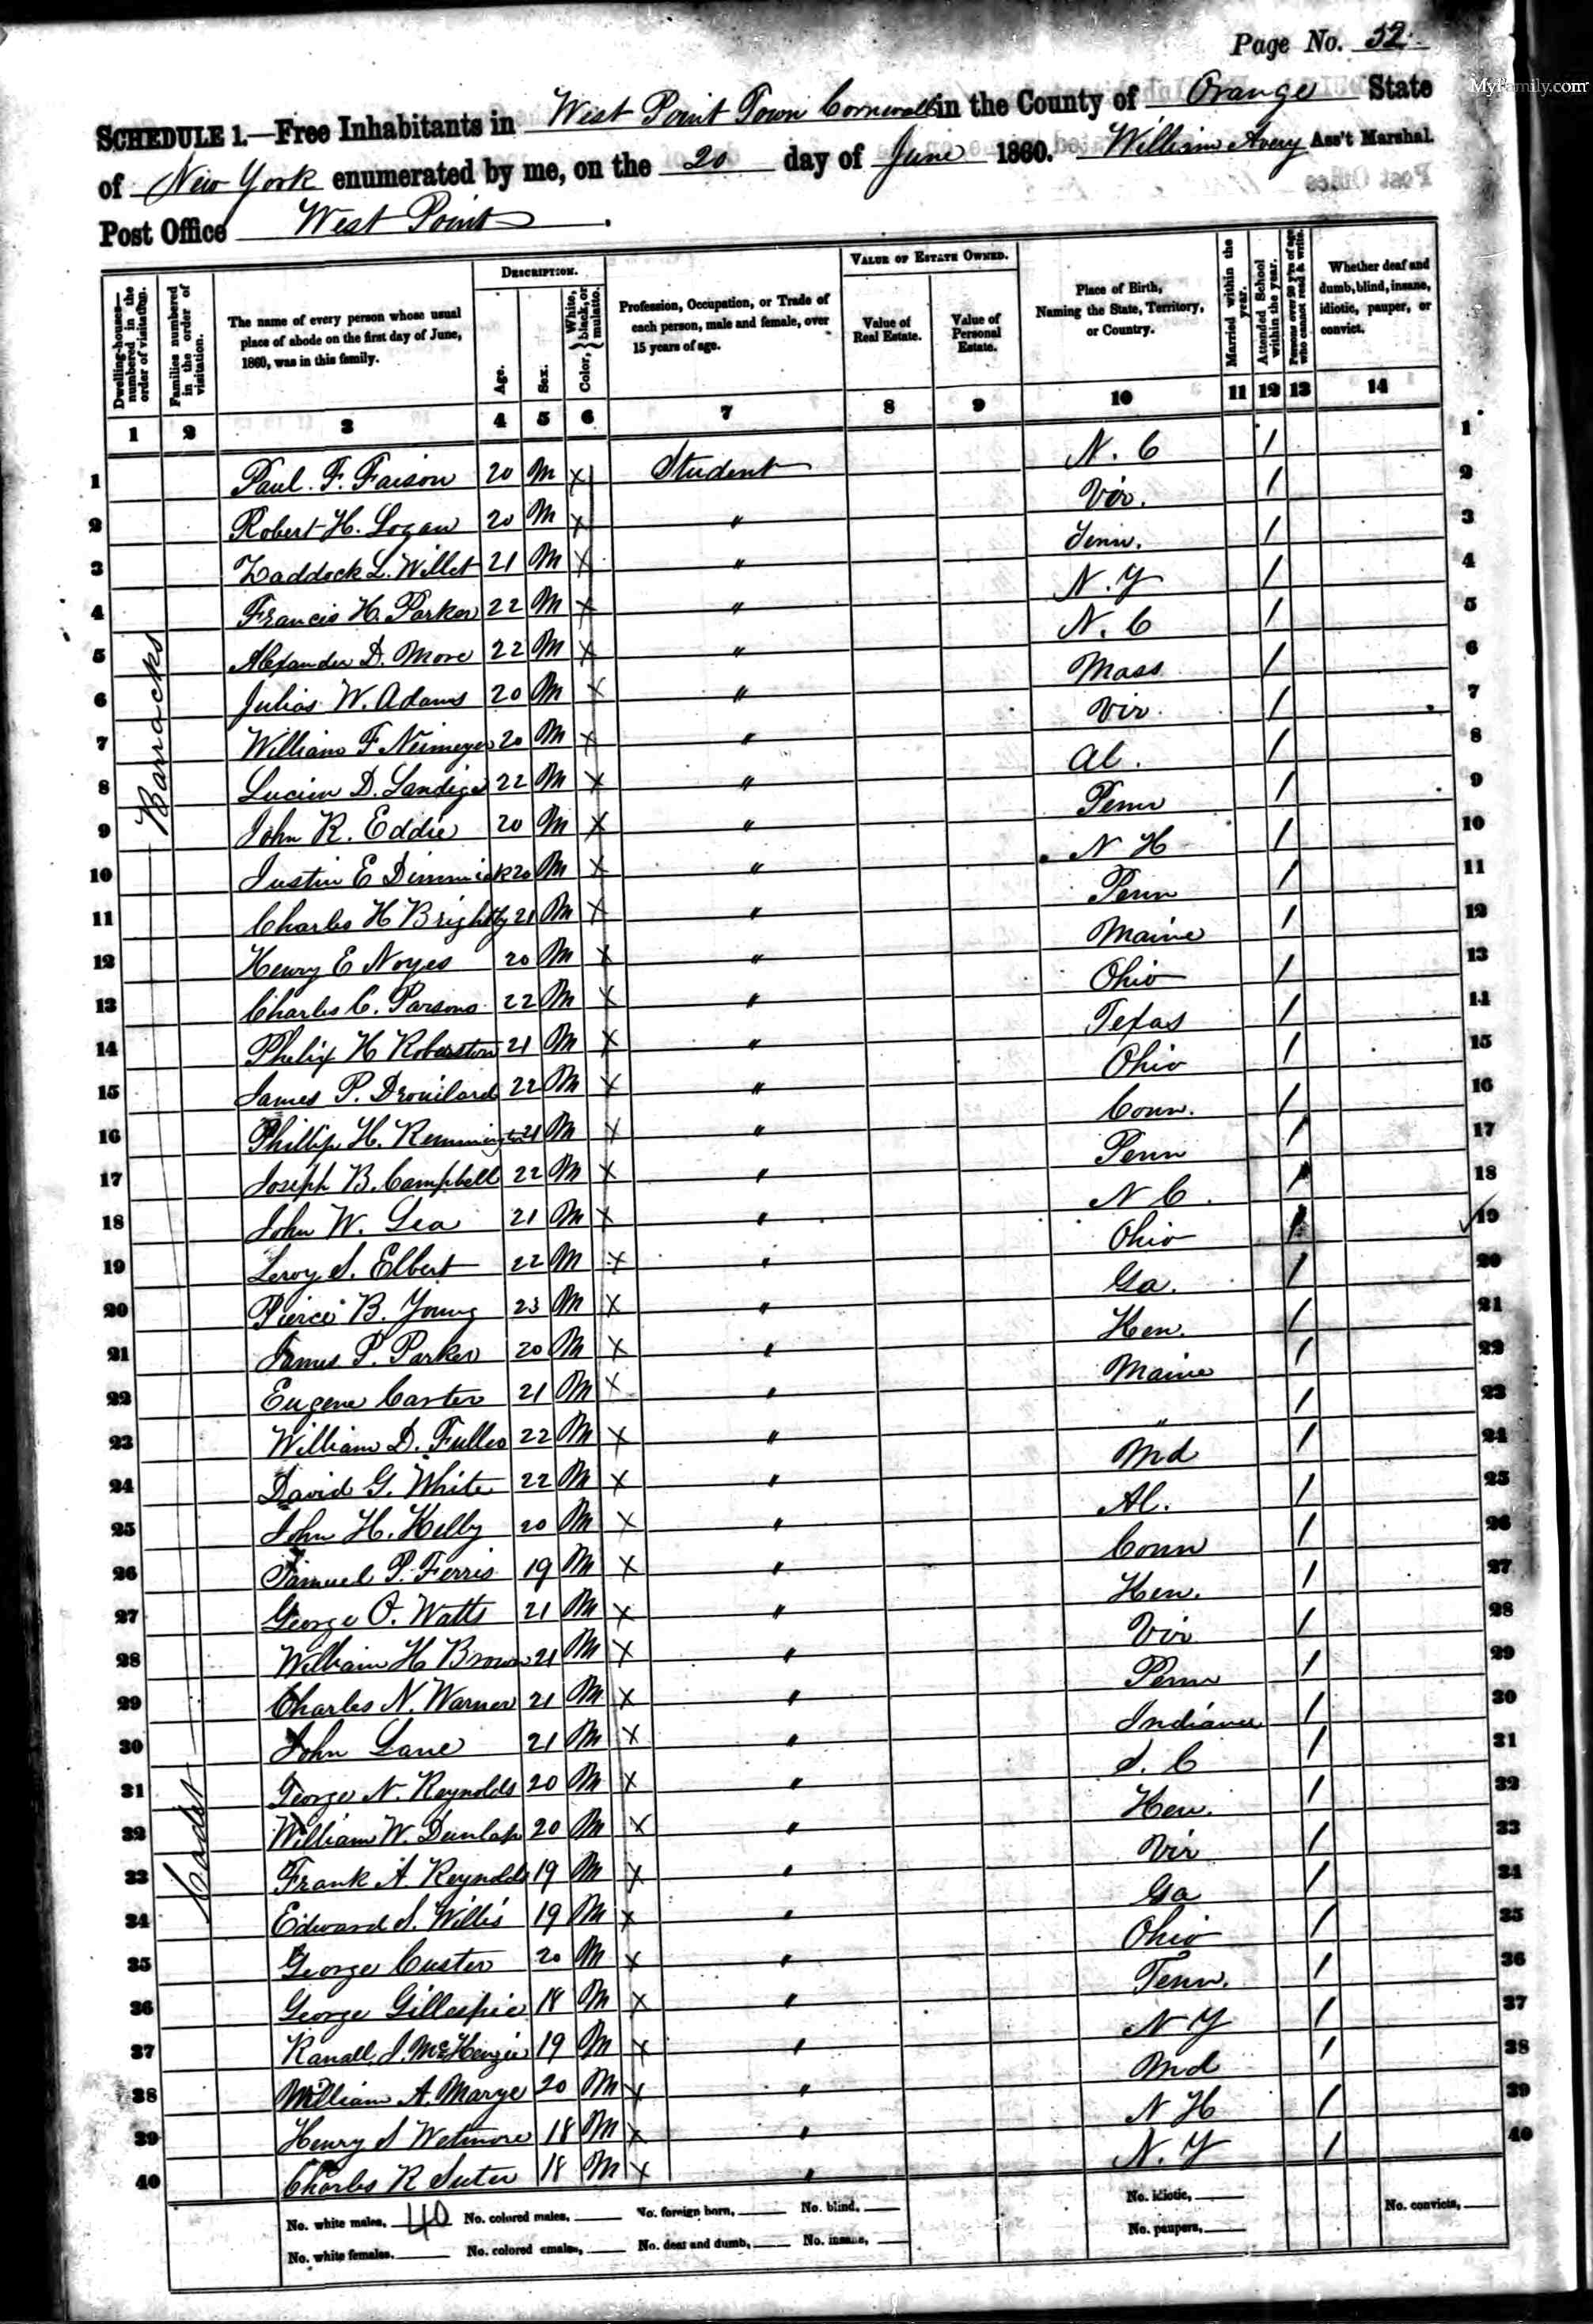 Page No. 52
MyFamily.com
SCHEDULE 1.—Free Inhabitants in West Point Town Cornwall in the County of Orange State
of New York enumerated by me, on the 20 day of June 1860. William Avery Ass't Marshal.
Post Office West Point.
Dwelling-houses—numbered in the order of visitation.
Families numbered in the order of visitation.
The name of every person whose usual place of abode on the first day of June, 1860, was in this family.
DESCRIPTION.
Age.
Sex.
Color, White, black, or mulatto.
Profession, Occupation, or Trade of each person, male and female, over 15 years of age.
VALUE OF ESTATE OWNED.
Value of Real Estate.
Value of Personal Estate.
Place of Birth, Naming the State, Territory, or Country.
Married within the year.
Attended School within the year.
Persons over 20 y'rs of age who cannot read & write.
Whether deaf and dumb, blind, insane, idiotic, pauper, or convict.
1 2 3 4 5 6 7 8 9 10 11 12 13 14
Barracks
Cadet
1 Paul. F. Faison 20 M x Student N. C / 1
2 Robert H. Logan 20 M x " Vir. / 2
3 Zaddock L. Willet 21 M x " Tenn. / 3
4 Francis H. Parker 22 M x " N. Y / 4
5 Alexander D. More 22 M x " N. C / 5
6 Julias W. Adams 20 M x " Mass / 6
7 William F Neimeyer 20 M x " Vir. / 7
8 Lucien D. Sandige 22 M x " Al. / 8
9 John R. Eddie 20 M x " Penn / 9
10 Justin E Dimmick 20 M x " N H / 10
11 Charles H Brightly 21 M x " Penn / 11
12 Henry E Noyes 20 M x " Maine / 12
13 Charles C. Parsons 22 M x " Ohio / 13
14 Philix H Roberston 21 M x " Texas / 14
15 James P. Drouilard 22 M x " Ohio / 15
16 Phillip H. Remmington 21 M x " Conn. / 16
17 Joseph B. Campbell 22 M x " Penn / 17
18 John W. Lea 21 M x " N C. / 18
19 Leroy S. Elbert 22 M x " Ohio / 19
20 Pierce B. Young 23 M x " Ga. / 20
21 James P. Parker 20 M x " Ken. / 21
22 Eugene Carter 21 M x " Maine / 22
23 William D. Fuller 22 M x " " / 23
24 David G. White 22 M x " Md / 24
25 John H. Kelly 20 M x " Al. / 25
26 Samuel P. Ferris 19 M x " Conn / 26
27 George O. Watts 21 M x " Ken. / 27
28 William H Brown 21 M x " Vir / 28
29 Charles N. Warner 21 M x " Penn / 29
30 John Lane 21 M x " Indiana / 30
31 George N. Reynolds 20 M x " S. C / 31
32 William W. Dunlap 20 M x " Ken. / 32
33 Frank A Reynolds 19 M x " Vir / 33
34 Edward S. Willis 19 M x " Ga / 34
35 George Custer 20 M x " Ohio / 35
36 George Gillespie 18 M x " Tenn. / 36
37 Ranall S. McKenzie 19 M x " N Y / 37
38 William A. Marye 20 M x " Md / 38
39 Henry S Wetmore 18 M x " N H / 39
40 Charles R Suter 18 M x " N. Y / 40
No. white males, 40 No. colored males, No. foreign born, No. blind, No. idiotic, No. convicts,
No. white females, No. colored emales, No. deaf and dumb, No. insane, No. paupers,